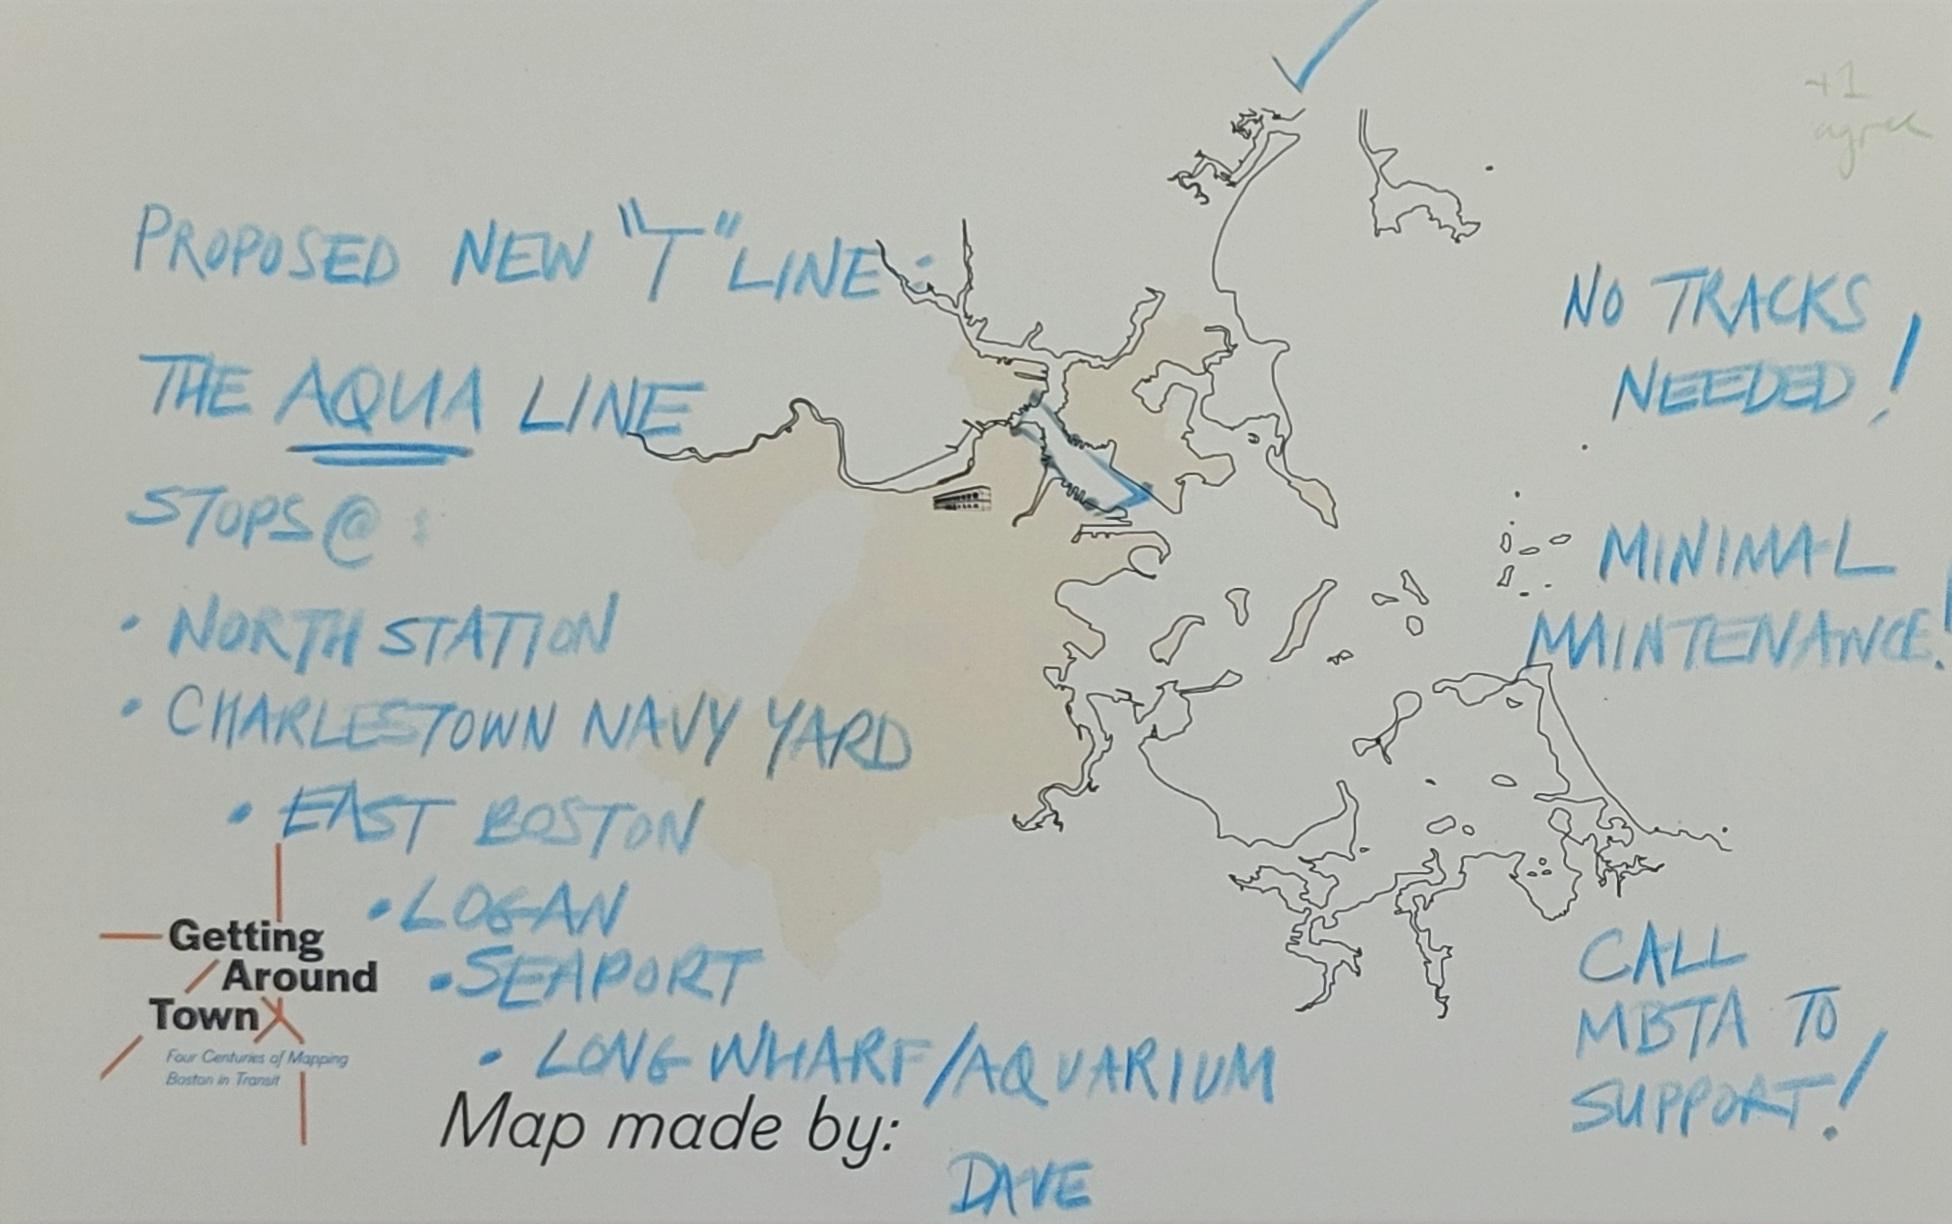 +1
agree
PROPOSED NEW "T" LINE:
THE AQUA LINE
STOPS @ :
• NORTH STATION
• CHARLESTOWN NAVY YARD
• EAST BOSTON
• LOGAN
• SEAPORT
• LONG WHARF/AQUARIUM
NO TRACKS
NEEDED!
MINIMAL
MAINTENANCE!
CALL
MBTA TO
SUPPORT!
Getting
Around
Town
Four Centuries of Mapping
Boston in Transit
Map made by:
DAVE